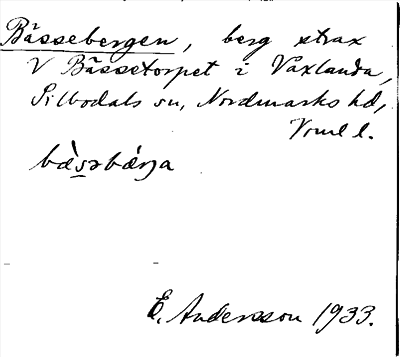 Bässebergen, berg strax
V Bässetorpet i Vaxlanda,
Silbodals sn, Nordmarks hd,
Vrml l.
bæ̀səbær̀ja
E. Andersson 1933.